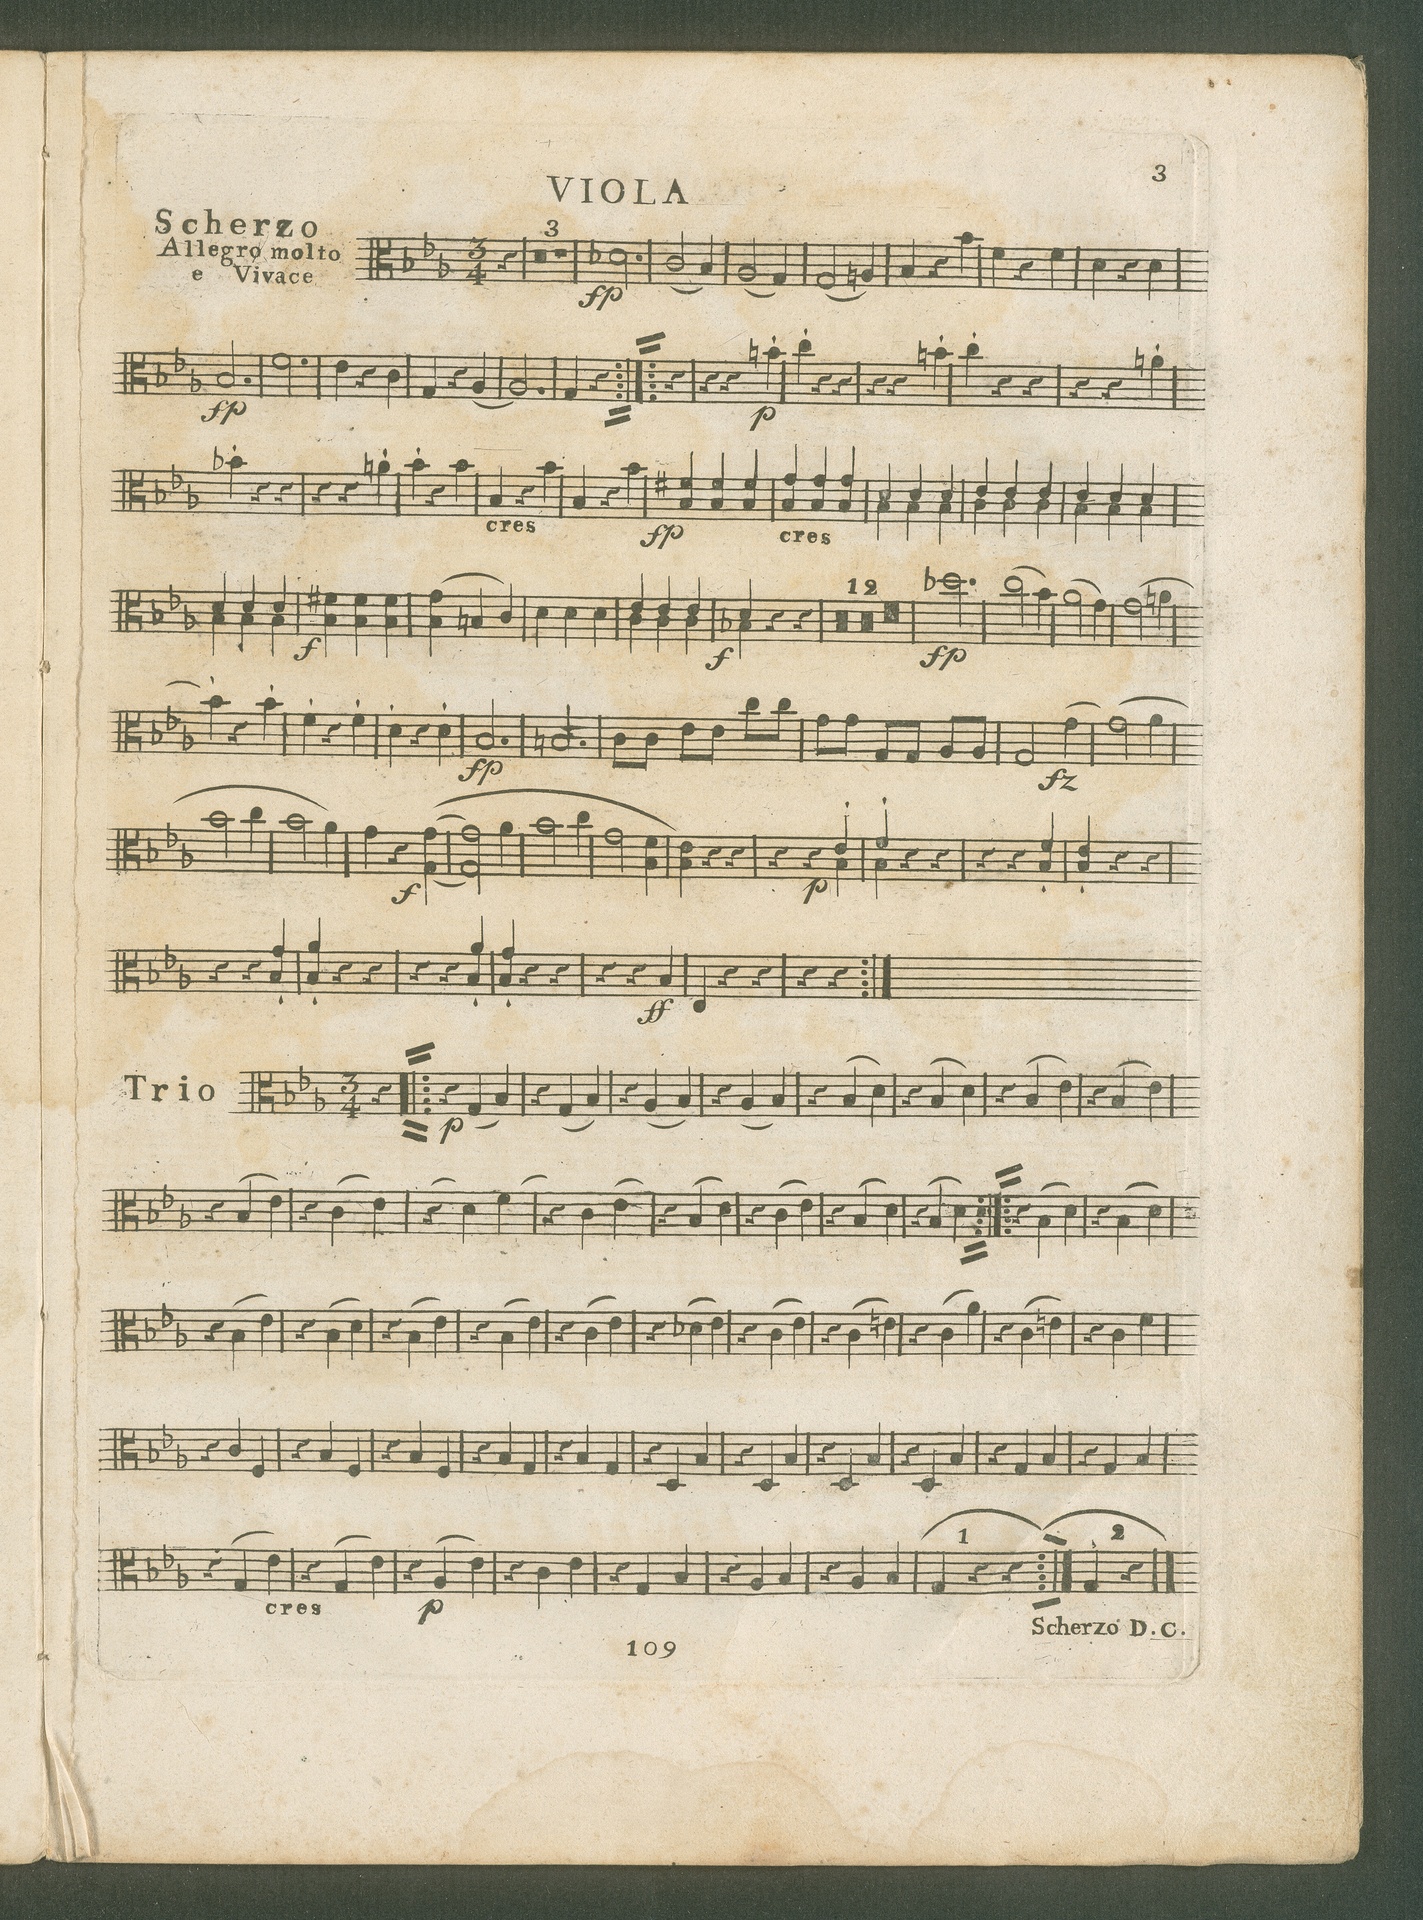 3
VIOLA
Scherzo
Allegro molto
e Vivace
3
3
4
fp
fp
p
cres
fp
cres
f
f
12
fp
fp
fz
f
p
ff
Trio
3
4
p
cres
p
1
2
Scherzo D.C.
109